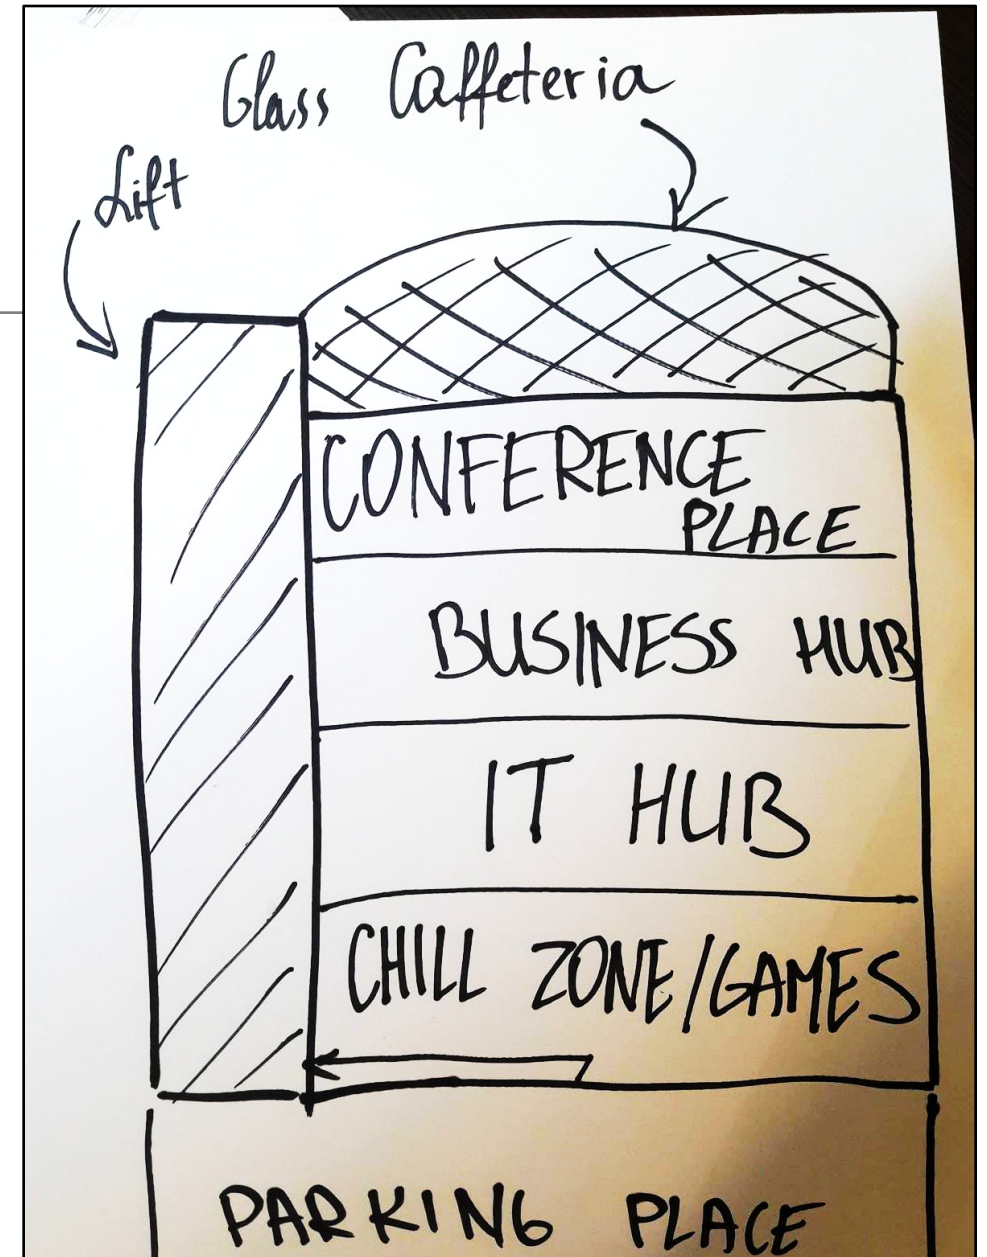 Glass Caffeteria
Lift
CONFERENCE
PLACE
BUSINESS HUB
IT HUB
CHILL ZONE/GAMES
PARKING PLACE